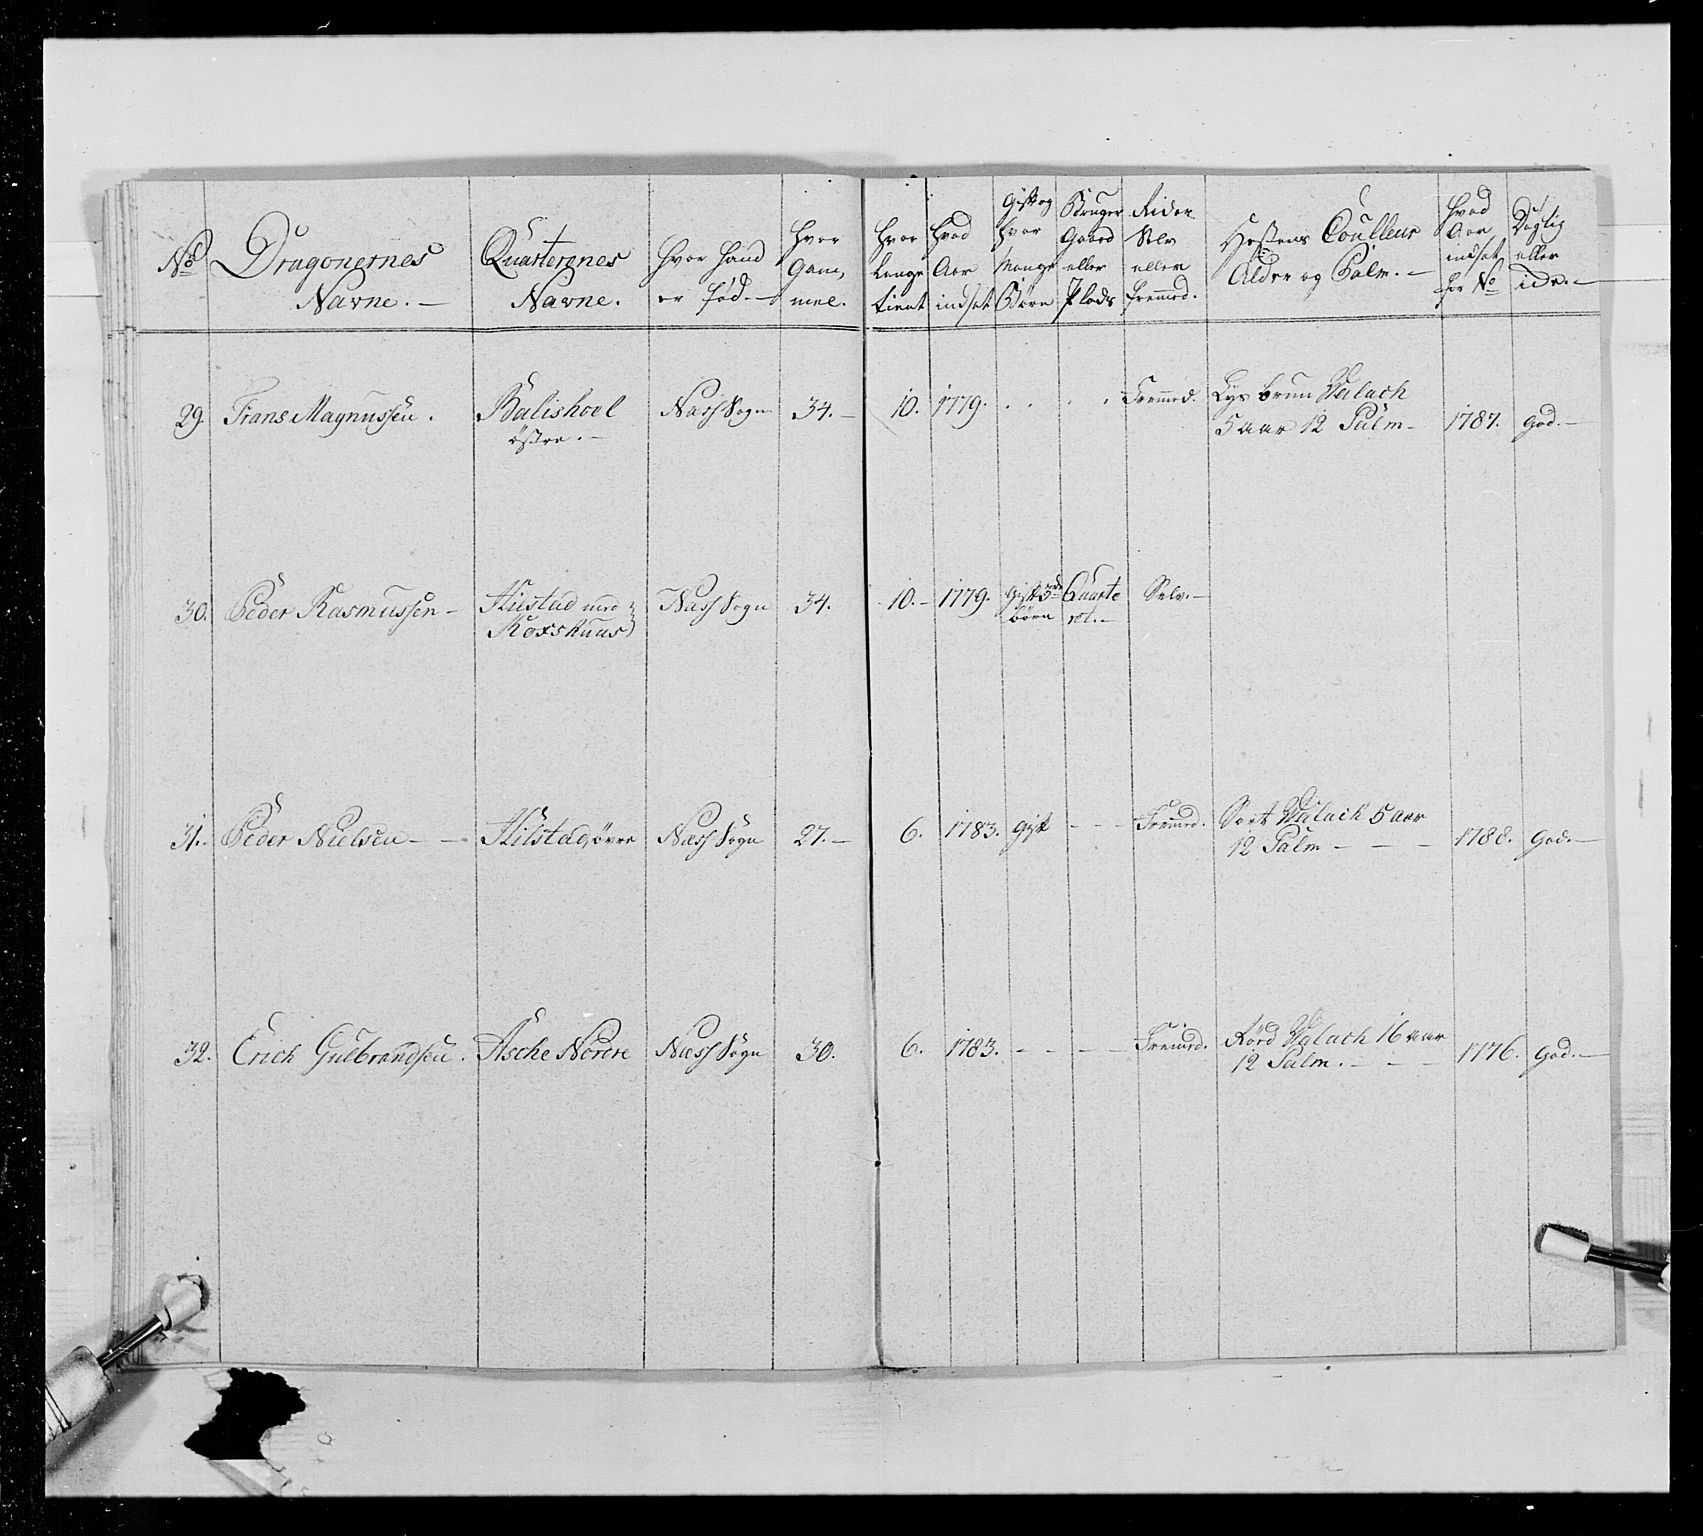 No
Dragonernes
Navne. —
Quarterenes
Navne.
Hvor Hand
er fød. —
Hvor
Gam,
mel.
Hvor
Lenge
tient
Hvad
Aar
indsat
Gift og
Hvor
Mange
Børn
Bruger
Gaard
eller
Plads
Rider
Selv
eller
fremed.
Hestens Coulleur
Alder og Palm. —
Hvad
Aar
indsat
for No
Dygtig
eller
ick. —
29. Frans Magnussen. Balishoel Næss Sogn 34. — 10. 1779. . . . . Fremed. Lys brun Valach
østre. — 5 aar 12 Palm — 1787. God. —
30. Peder Rasmussen — Kilstad med Næss Sogn 34. 10. — 1779. Gift 3de Quarte Selv. —
børn ret. —
31. Peder Nielsen — — Kilstad, øvre Næss Sogn 27. — 6. 1783. Gift — — — Fremed. Sort Valach 5 aar
12 Palm — — — 1788. God. —
32. Erich Gulbrandsen. Asche Nordre Næss Sogn 30. 6. 1783. — — — — Fremed. Rød Valach 16 aar
12 Palm. — — — 1776. God. —